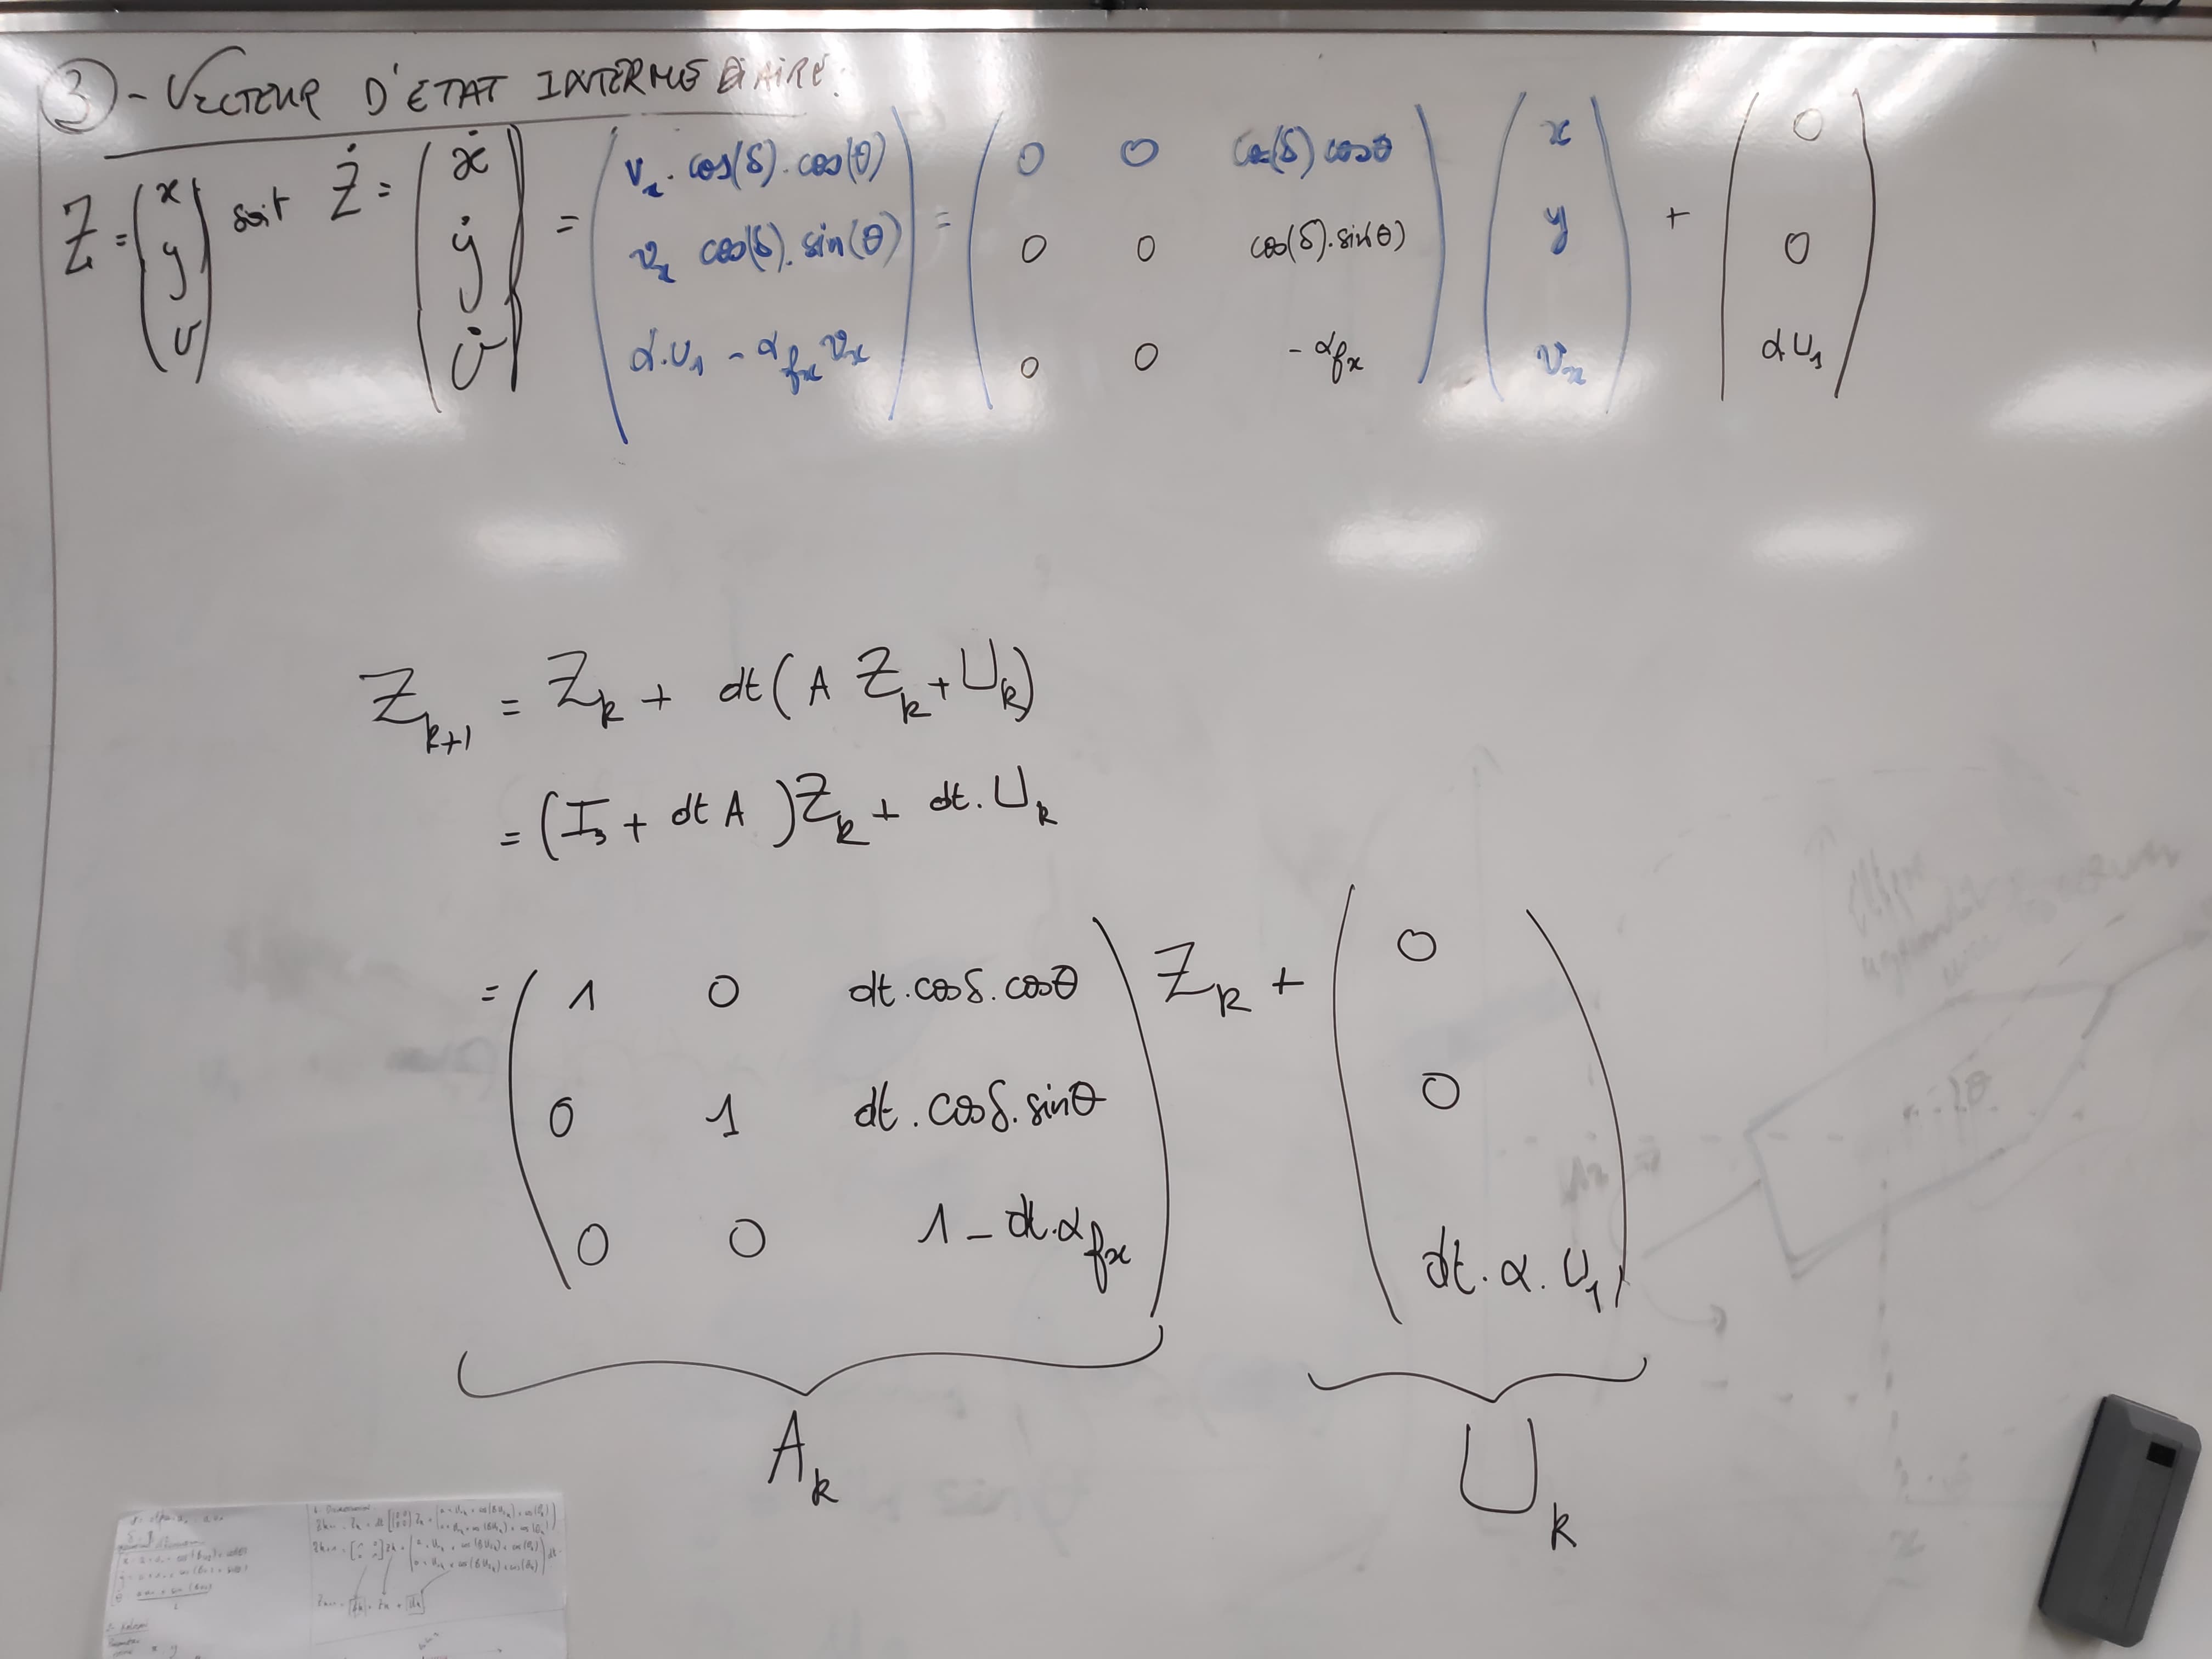 ③ - VECTEUR D'ETAT INTERMEDIAIRE:
Z = (x y v) soit Ż = (ẋ ẏ v̇) = (vₓ. cos(δ). cos(θ) ; vₓ cos(δ). sin(θ) ; α.u₁ - α_fx vₓ) = (0 0 cos(δ) cosθ ; 0 0 cos(δ).sin(θ) ; 0 0 - α_fx) (x y vₓ) + (0 0 αu₁)
Z_k+1 = Z_k + dt(A Z_k + U_k)
= (I₃ + dt A) Z_k + dt. U_k
= (1 0 dt.cosδ.cosθ ; 0 1 dt.cosδ.sinθ ; 0 0 1 - dt.α_fx) Z_k + (0 0 dt. α. u₁)
A_k U_k